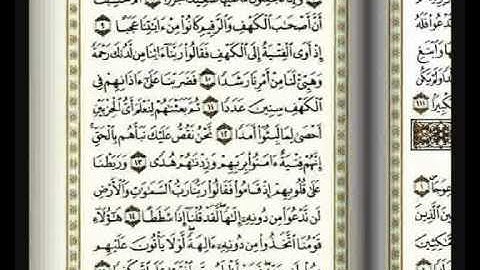 وَابْتَغِ
تَكْبِيرًا ١١١
عِوَجًا
أَنَّ أَصْحَٰبَ ٱلْكَهْفِ وَٱلرَّقِيمِ كَانُوا۟ مِنْ ءَايَٰتِنَا عَجَبًا ٩
إِذْ أَوَى ٱلْفِتْيَةُ إِلَى ٱلْكَهْفِ فَقَالُوا۟ رَبَّنَآ ءَاتِنَا مِن لَّدُنكَ رَحْمَةً
وَهَيِّئْ لَنَا مِنْ أَمْرِنَا رَشَدًا ١٠ فَضَرَبْنَا عَلَىٰٓ ءَاذَانِهِمْ فِى
ٱلْكَهْفِ سِنِينَ عَدَدًا ١١ ثُمَّ بَعَثْنَٰهُمْ لِنَعْلَمَ أَىُّ ٱلْحِزْبَيْنِ
أَحْصَىٰ لِمَا لَبِثُوٓا۟ أَمَدًا ١٢ نَّحْنُ نَقُصُّ عَلَيْكَ نَبَأَهُم بِٱلْحَقِّ ۚ
إِنَّهُمْ فِتْيَةٌ ءَامَنُوا۟ بِرَبِّهِمْ وَزِدْنَٰهُمْ هُدًى ١٣ وَرَبَطْنَا
عَلَىٰ قُلُوبِهِمْ إِذْ قَامُوا۟ فَقَالُوا۟ رَبُّنَا رَبُّ ٱلسَّمَٰوَٰتِ وَٱلْأَرْضِ
لَن نَّدْعُوَا۟ مِن دُونِهِۦٓ إِلَٰهًا ۖ لَّقَدْ قُلْنَآ إِذًا شَطَطًا ١٤ هَٰٓؤُلَآءِ
قَوْمُنَا ٱتَّخَذُوا۟ مِن دُونِهِۦٓ ءَالِهَةً ۖ لَّوْلَا يَأْتُونَ عَلَيْهِم